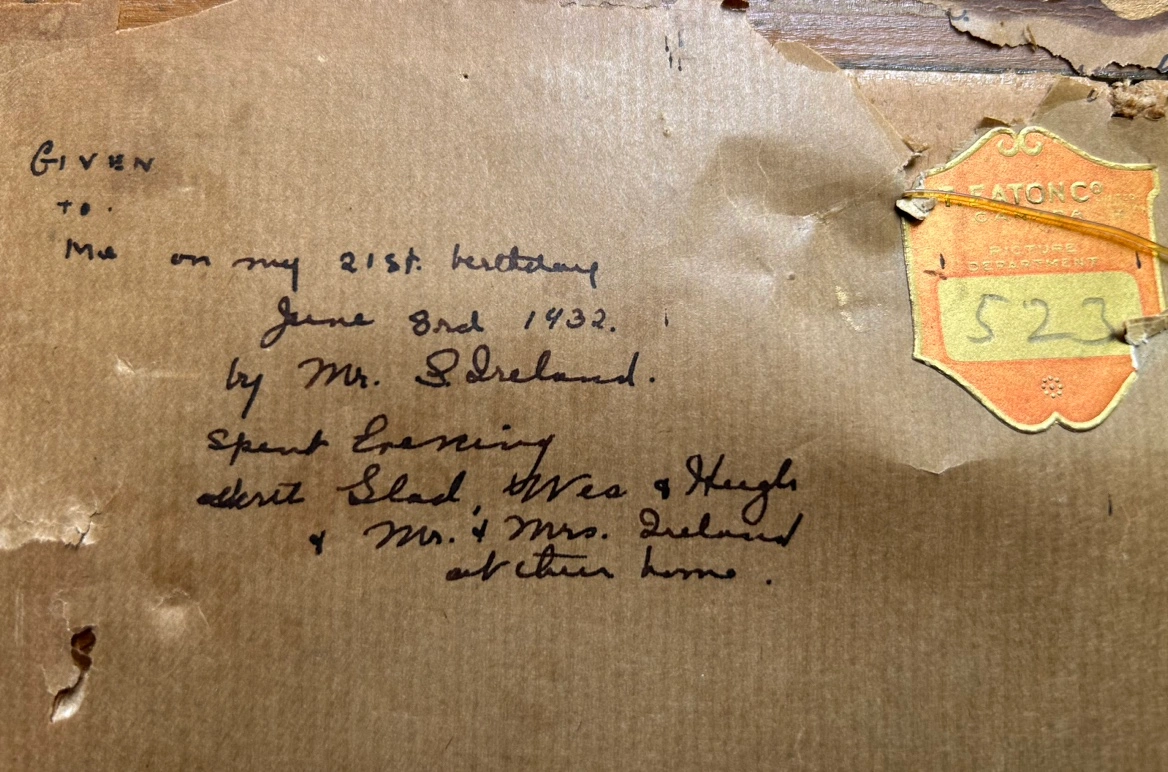 GIVEN
TO.
Me on my 21st. birthday
June 3rd 1932.
by Mr. S. Ireland.
Spent Evening
with Glad, Wes & Hugh
& Mr. & Mrs. Ireland
at their home.
T. EATON Co
CANADA
PICTURE
DEPARTMENT
523